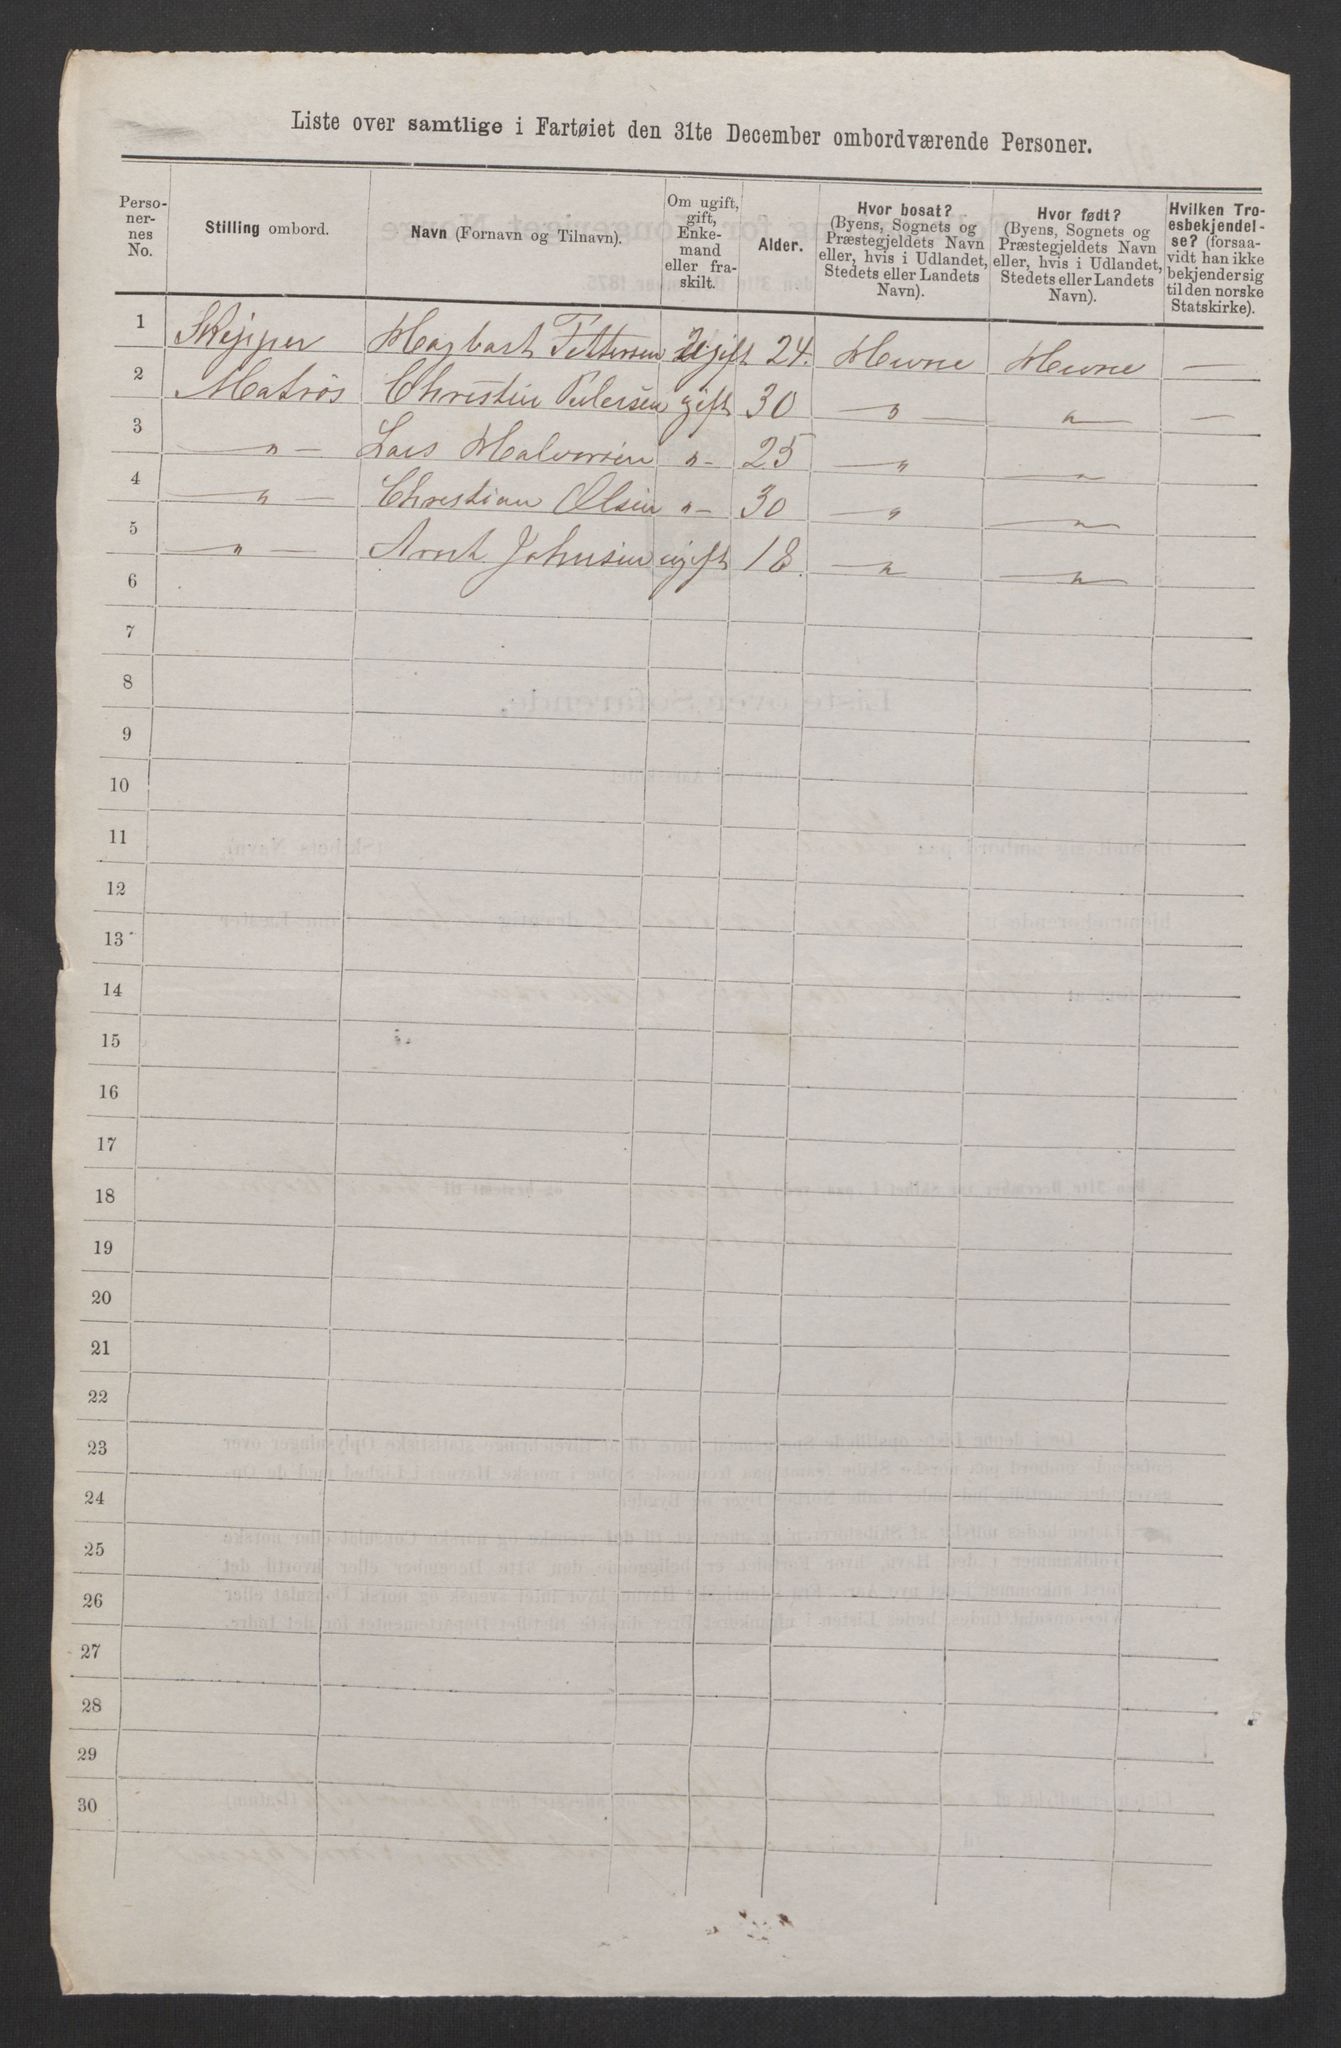 Liste over samtlige i Fartøiet den 31te December ombordværende Personer.
Perso-
ner-
nes
No.
Stilling ombord.
Navn (Fornavn og Tilnavn).
Om ugift,
gift,
Enke-
mand
eller fra-
skilt.
Alder.
Hvor bosat?
(Byens, Sognets og
Præstegjeldets Navn
eller, hvis i Udlandet,
Stedets eller Landets
Navn).
Hvor født?
(Byens, Sognets og
Præstegjeldets Navn
eller, hvis i Udlandet,
Stedets eller Landets
Navn).
Hvilken Tro-
esbekjendel-
se? (forsaa-
vidt han ikke
bekjender sig
til den norske
Statskirke).
1 Skipper Hagbart Pettersen Ugift 24. Hevne Hevne —
2 Matrôs Christin Pedersen gift 30 — " — — " — —
3 — " — Lars Halvorsen " - 25 — " — " —
4 — " — Christian Olsen " - 30 — " — " —
5 — " — Arnt Johnsen ugift 18. — " — " —
6
7
8
9
10
11
12
13
14
15
16
17
18
19
20
21
22
23
24
25
26
27
28
29
30